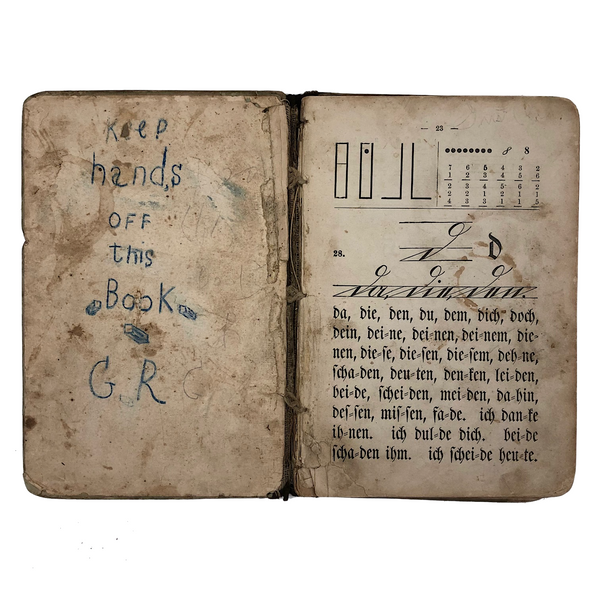 Keep
hands
OFF
this
Book
G R
— 23 —
8 8
7 6 5 4 3 2
1 2 3 4 5 6
2 3 4 5 6 2
2 2 1 2 1 1
4 3 3 1 1 5
28. d d
da, die, den.
da, die, den, du, dem, dich, doch,
dein, dei-ne, dei-nen, dei-nem, die-
nen, die-ſe, die-ſen, die-ſem, deh-ne,
ſcha-den, deu-ten, den-ken, lei-den,
bei-de, ſchei-den, mei-den, da-hin,
deſ-ſen, miſ-ſen, fa-de. ich dan-ke
ih-nen. ich dul-de dich. bei-de
ſcha-den ihm. ich ſchei-de heu-te.